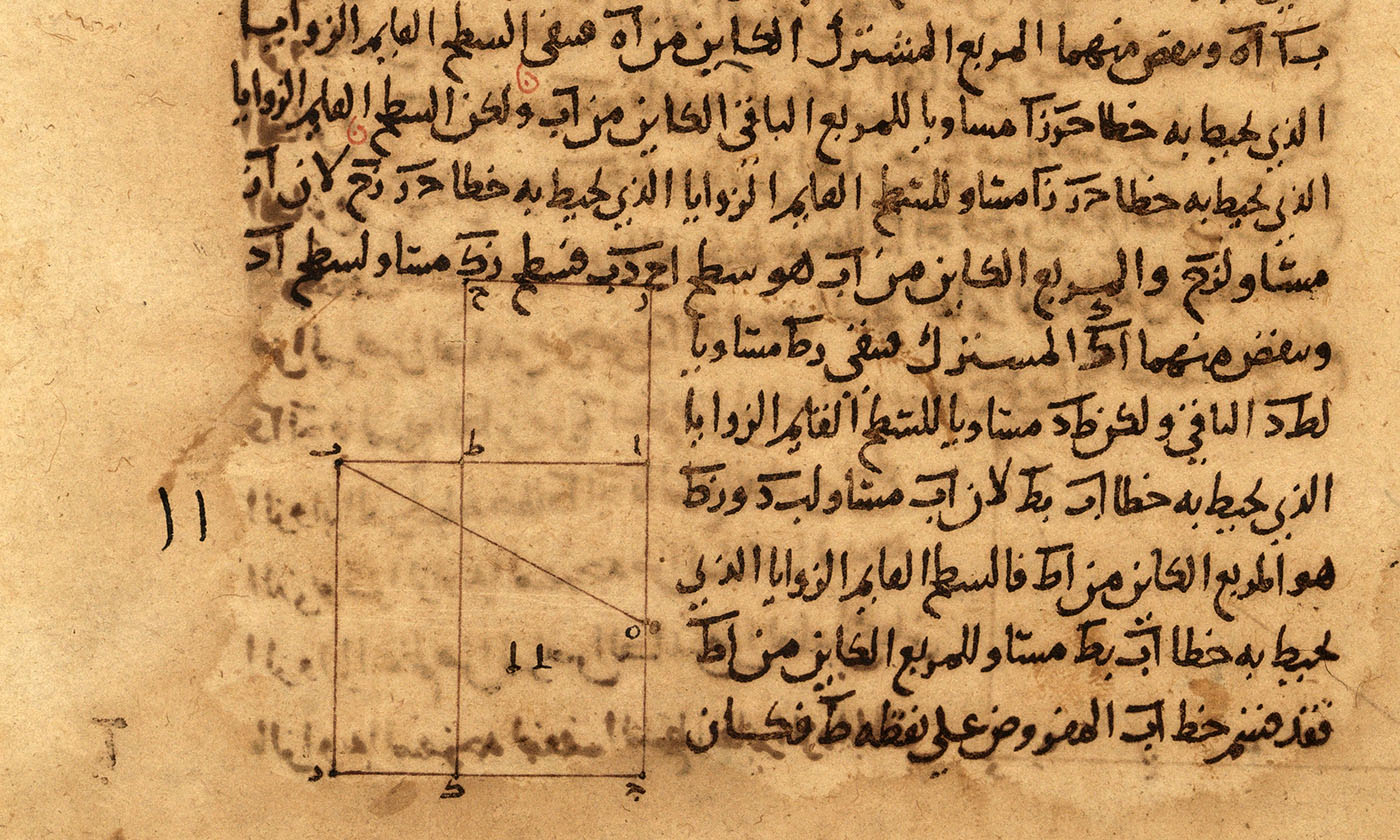 ب آ آه وينقص منهما المربع المشترك الكاين من آه فيبقى السطح القايم الزوايا
الذي يحيط به خطا حز زا مساويا للمربع الباقي الكاين من اب ولكن السطح القايم الزوايا
الذي يحيط به خطا حز زا مساو للسطح القايم الزوايا الذي يحيط به خطا حز زح لان از
مساو لزح والمربع الكاين من اب هو سطح اح دب فسطح زك مساو لسطح اد
وينقص منهما اك المشترك فيبقى رط مساويا
لطد الباقي ولكن طد مساويا للسطح القايم الزوايا
الذي يحيط به خطا اب بط لان اب مساو لبد ورط
هو المربع الكاين من اط فالسطح القايم الزوايا الذي
يحيط به خطا اب بط مساو للمربع الكاين من اط
فقد قسم خط اب المفروض على نقطة ط فكان
ح ز
ب ط ا
١١
ه
11
د ك ج